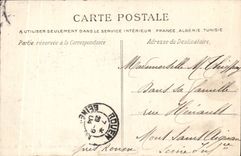 CARTE POSTALE
A UTILISER SEULEMENT DANS LE SERVICE INTÉRIEUR FRANCE, ALGÉRIE, TUNISIE
Partie réservée à la Correspondance
Adresse du Destinataire.
Mademoiselle M
Dans sa famille
rue
Mont Saint Aignan
près Rouen
Seine Infre
ROUEN